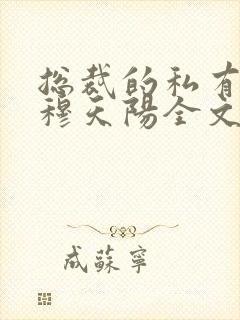 总裁的私有
穆天陽全文
成蘇寧